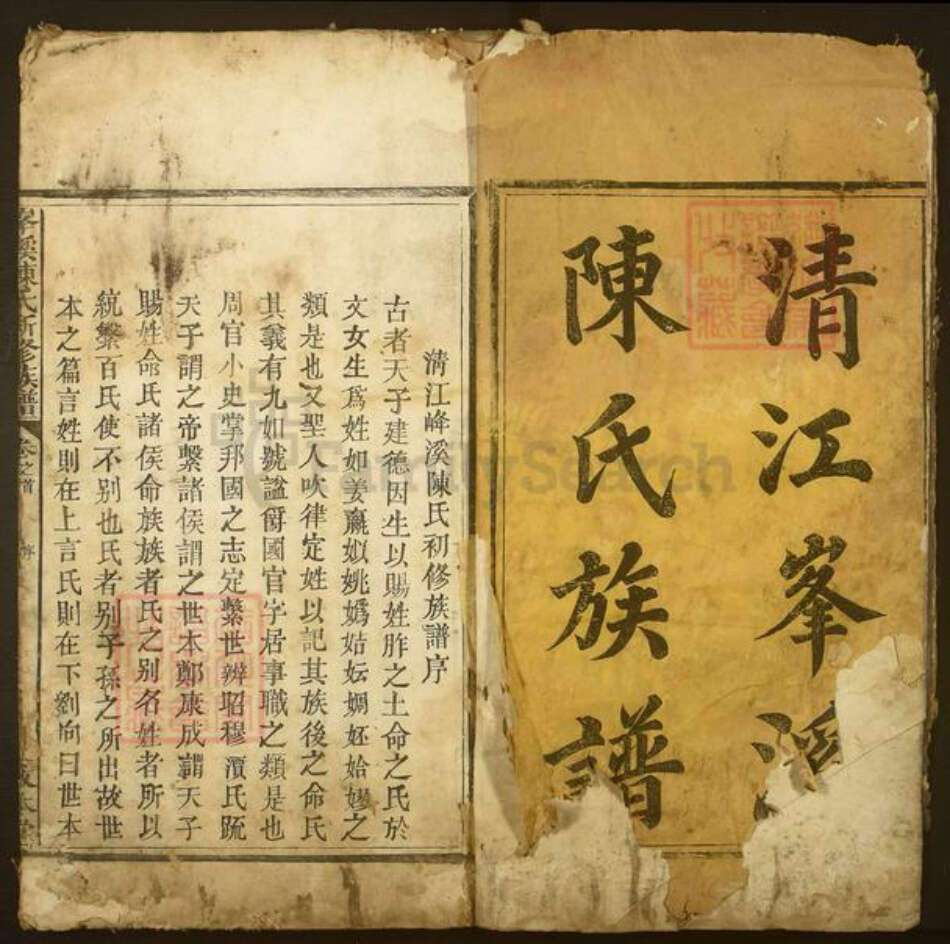 清江峯溪
陳氏族譜
清江峰溪陳氏初修族譜序
古者天子建德因生以賜姓胙之土命之氏於
文女生爲姓如姜嬴姒姚嬀姞妘嫺妚姶嫪之
類是也又聖人吹律定姓以記其族後之命氏
其義有九如號諡爵國官字居事職之類是也
周官小史掌邦國之志定繫世辨昭穆賈氏疏
天子謂之帝繫諸侯謂之世本鄭康成謂天子
賜姓命氏諸侯命族族者氏之别名姓者所以
統繫百氏使不别也氏者别子孫之所出故世
本之篇言姓則在上言氏則在下劉向曰世本
峯溪陳氏新修族譜 卷之首 序
FamilySearch